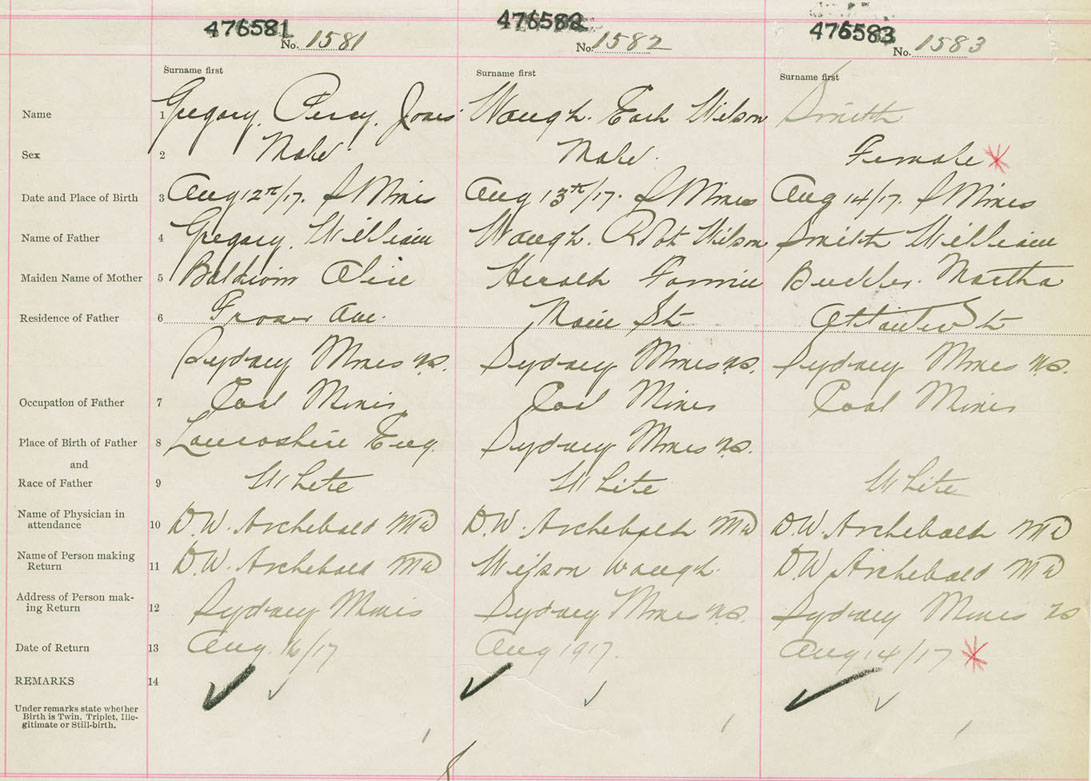 476581 476582 476583
No. 1581 No. 1582 No. 1583
Surname first Surname first Surname first
Name 1 Gregory, Percy, Jones Waugh. Wilson Smith
Sex 2 Male Male. Female
Date and Place of Birth 3 Aug 12th/17. S Mines Aug 13th/17. S Mines Aug 14/17. S Mines
Name of Father 4 Gregory, William Waugh. Robt Wilson Smith William
Maiden Name of Mother 5 Baldwin Alice Fannie Martha
Residence of Father 6 Fraser Ave. Main St St
Sydney Mines N.S. Sydney Mines N.S. Sydney Mines N.S.
Occupation of Father 7 Coal Miner Coal Miner Coal Miner
Place of Birth of Father 8 Lancashire Eng. Sydney Mines N.S.
and
Race of Father 9 White White White
Name of Physician in
attendance 10 D.W. Archibald MD D.W. Archibald MD D.W. Archibald MD
Name of Person making
Return 11 D.W. Archibald MD Wilson Waugh. D.W. Archibald MD
Address of Person mak-
ing Return 12 Sydney Mines Sydney Mines N.S. Sydney Mines NS
Date of Return 13 Aug. 16/17 Aug 1917. Aug 14/17
REMARKS 14
Under remarks state whether
Birth is Twin, Triplet, Ille-
gitimate or Still-birth.